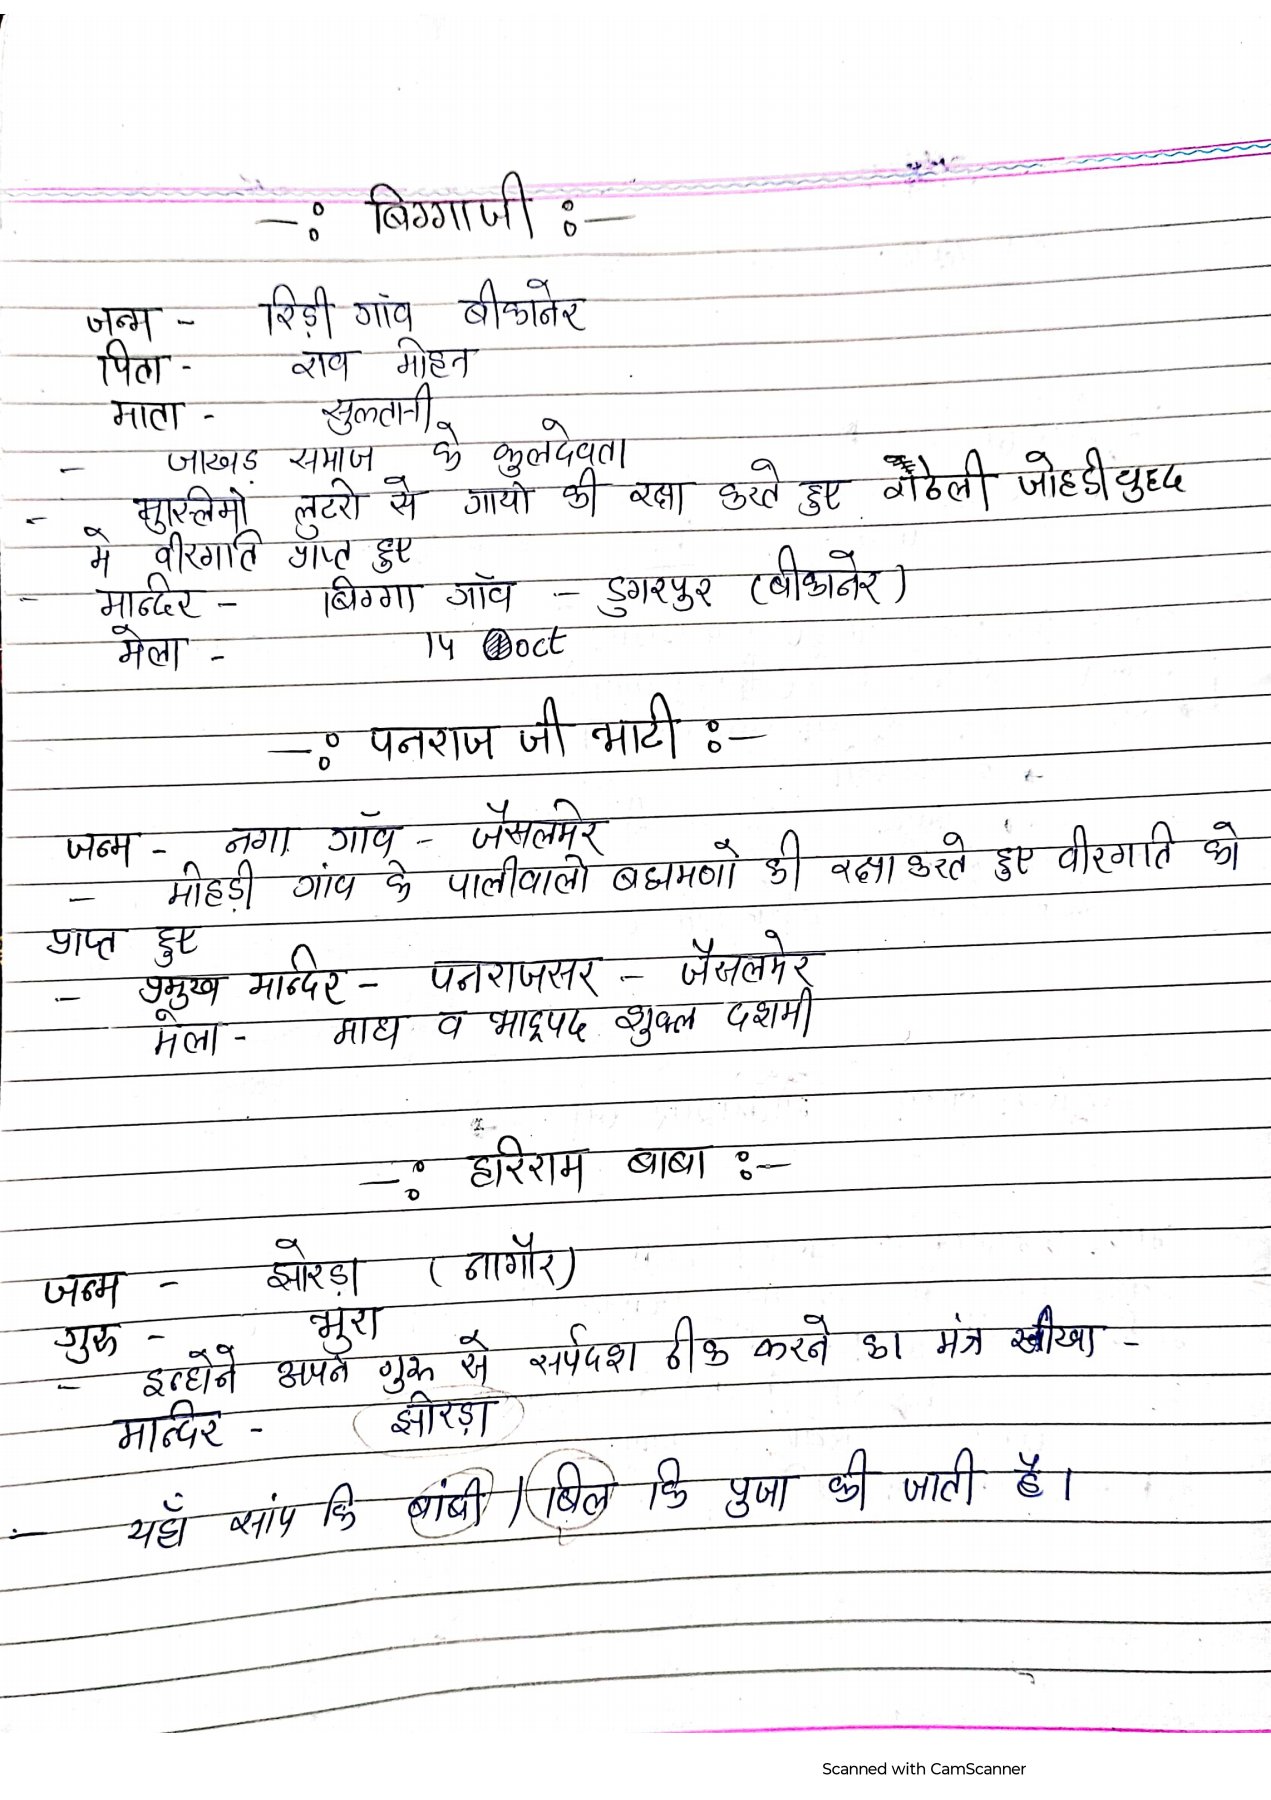 -: बिग्गाजी :-
जन्म - रिड़ी गांव बीकानेर
पिता - राव मोहन
माता - सुलतानी
- जाखड़ समाज के कुलदेवता
- मुस्लिमो लुटरो से गायो की रक्षा करते हुए राठेली जोहडी युद्द
मे वीरगति प्राप्त हुए
- मान्दिर - बिग्गा गॉव - डुगरपुर (बीकानेर)
मेला - 14 oct
-: पनराज जी भाटी :-
जन्म - नगा गॉव - जैसलमेर
- मोहड़ी गांव के पालीवालो बह्ममणो की रक्षा करते हुए वीरगति को
प्राप्त हुए
- प्रमुख मान्दिर - पनराजसर - जैसलमेर
मेला - माघ व भाद्रपद शुक्ल दशमी
-: हरिराम बाबा :-
जन्म - झोरड़ा (नागौर)
गुरु - भुरा
- इन्होने अपने गुरु से सर्पदश ठीक करने का मंत्र सीखा -
मान्दिर - झोरड़ा
- यहाँ सांप कि बांबी / बिल कि पुजा की जाती है।
Scanned with CamScanner